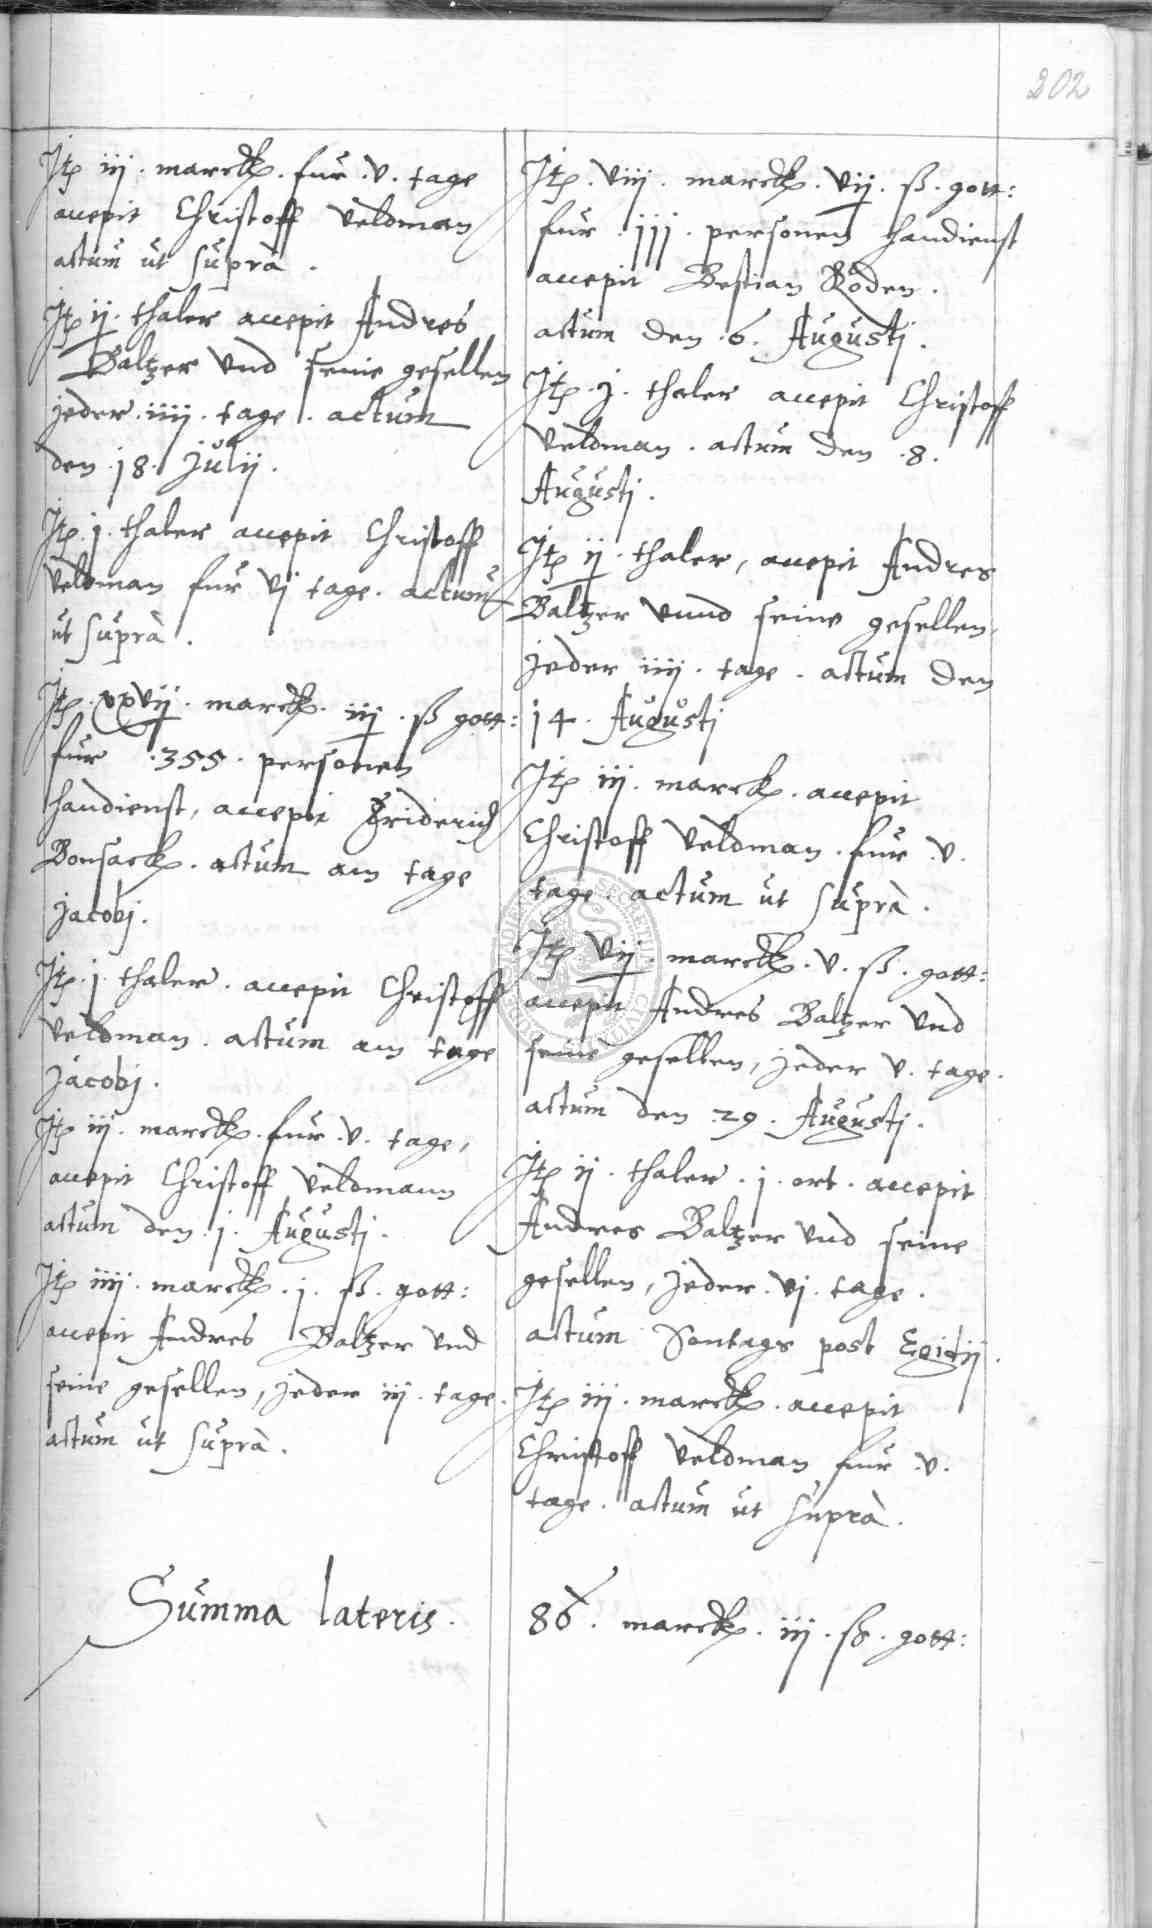 202
Jtẽ iij. marckẽ. fur .v. tage
accepit Christoff Veldman
actum ut suprà.
Jtẽ ij. thaler accepit Andres
Baltzer vnd seine gesellen
jeder .iiij. tage. actum
den .18. Julij.
Jtẽ. j. thaler accepit Christoff
Veldman fur vj tage. actum
ut suprà.
Jtẽ. xxvij. marckẽ. iij. ß gott:
fur .355. personen
handienst, accepit Friderich
Bonsack. actum am tage
Jacobj.
Jtẽ. j. thaler. accepit Christoff
Veldman. actum am tage
Jacobj.
Jtẽ iij. marckẽ. fur .v. tage,
accepit Christoff Veldmann
actum den .j. Augustj.
Jtẽ iiij. marckẽ. j. ß. gott:
accepit Andres Baltzer vnd
seine gesellen, jeder iij. tage.
actum ut suprà.
Jtẽ. viij. marckẽ. vij. ß. gott:
fur .jjj. personen handienst
accepit Bestian Roden.
actum den .6. Augustj.
Jtẽ. j. thaler accepit Christoff
Veldman. actum den .8.
Augustj.
Jtẽ ij. thaler, accepit Andres
Baltzer vnnd seine gesellen,
jeder iiij. tage. actum den
14. Augustj
Jtẽ iij. marckẽ. accepit
Christoff Veldman. fur .v.
tage. actum ut suprà.
Jtẽ vij. marckẽ. v. ß. gott:
accepit Andres Baltzer vnd
seine gesellen, jeder v. tage.
actum den .29. Augustj.
Jtẽ ij. thaler. j. ort. accepit
Andres Baltzer vnd seine
gesellen, jeder. vj. tage.
actum Sontags post Egidij.
Jtẽ iij. marckẽ. accepit
Christoff Veldman fur .v.
tage. actum ut suprà.
Summa lateris. 86. marckẽ. iij. ß. gott: